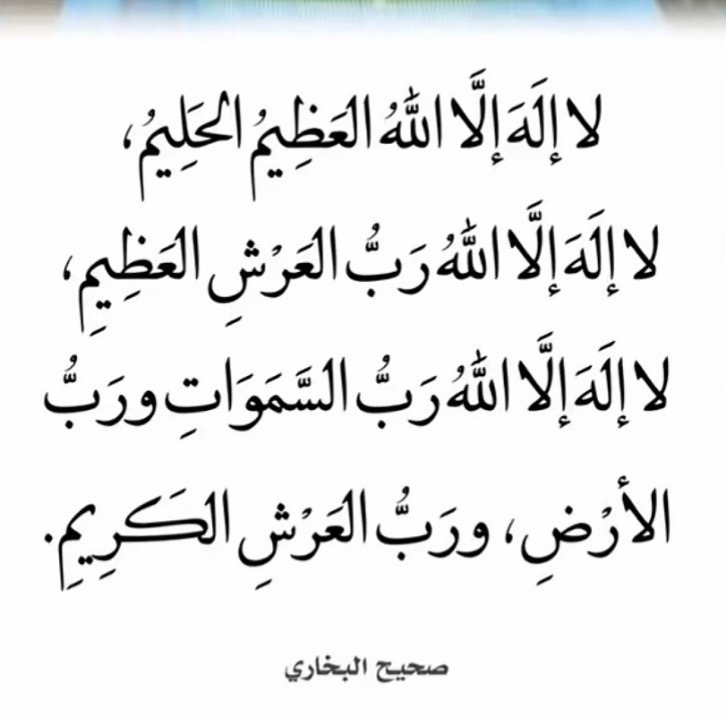 لا إِلَهَ إِلَّا اللَّهُ العَظِيمُ الحَلِيمُ،
لا إِلَهَ إِلَّا اللَّهُ رَبُّ العَرْشِ العَظِيمِ،
لا إِلَهَ إِلَّا اللَّهُ رَبُّ السَّمَوَاتِ ورَبُّ
الأرْضِ، ورَبُّ العَرْشِ الكَرِيمِ.
صحيح البخاري